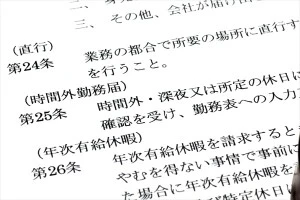 三、その他、会社が届け出
(直行)
第24条 業務の都合で所要の場所に直行す
を行うこと。
(時間外勤務届)
第25条 時間外・深夜又は所定の休日に
確認を受け、勤務表への入力
(年次有給休暇)
第26条 年次有給休暇を請求するとき
やむを得ない事情で事前に
た場合に年次有給休暇を
び特定休日に